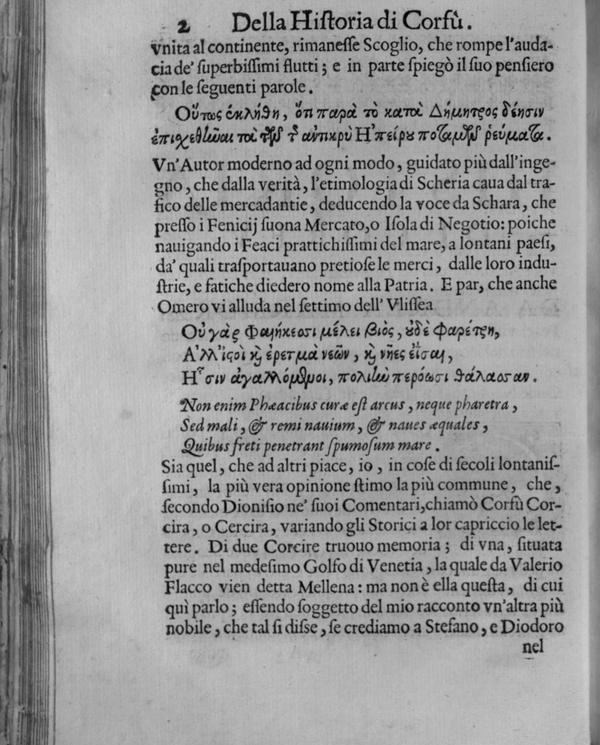 2 Della Hiſtoria di Corfù.
vnita al continente, rimaneſſe Scoglio, che rompe l'auda-
cia de' ſuperbiſſimi flutti; e in parte ſpiegò il ſuo penſiero
con le ſeguenti parole.
Οὕτως ἐκλήθη, ὅτι παρὰ τὸ κατὰ Δήμητρος δέησιν
ἐπισχεθῶαι τὰ τῶν τῆ ἀντικρὺ Ἠπείρου ποταμῶν ῥεύματα.
Vn'Autor moderno ad ogni modo, guidato più dall'inge-
gno, che dalla verità, l'etimologia di Scheria caua dal tra-
fico delle mercadantie, deducendo la voce da Schara, che
preſſo i Fenicij ſuona Mercato, o Iſola di Negotio: poiche
nauigando i Feaci prattichiſſimi del mare, a lontani paeſi,
da' quali traſportauano pretioſe le merci, dalle loro indu-
ſtrie, e fatiche diedero nome alla Patria. E par, che anche
Omero vi alluda nel ſettimo dell' Vliſſea
Οὐ γὰρ Φαιήκεσσι μέλει βιὸς, οὐδὲ φαρέτρη,
Ἀλλ' ἱστοὶ καὶ ἐρετμὰ νεῶν, καὶ νῆες ἐῖσαι,
Ἧσιν ἀγαλλόμενοι, πολιὴν περόωσι θάλασσαν.
Non enim Phæacibus curæ eſt arcus, neque pharetra,
Sed mali, & remi nauium, & naues æquales,
Quibus freti penetrant ſpumoſum mare.
Sia quel, che ad altri piace, io, in coſe di ſecoli lontaniſ-
ſimi, la più vera opinione ſtimo la più commune, che,
ſecondo Dioniſio ne' ſuoi Comentari, chiamò Corfù Cor-
cira, o Cercira, variando gli Storici a lor capriccio le let-
tere. Di due Corcire truouo memoria; di vna, ſituata
pure nel medeſimo Golfo di Venetia, la quale da Valerio
Flacco vien detta Mellena: ma non è ella queſta, di cui
quì parlo; eſſendo ſoggetto del mio racconto vn'altra più
nobile, che tal ſi diſſe, ſe crediamo a Stefano, e Diodoro
nel